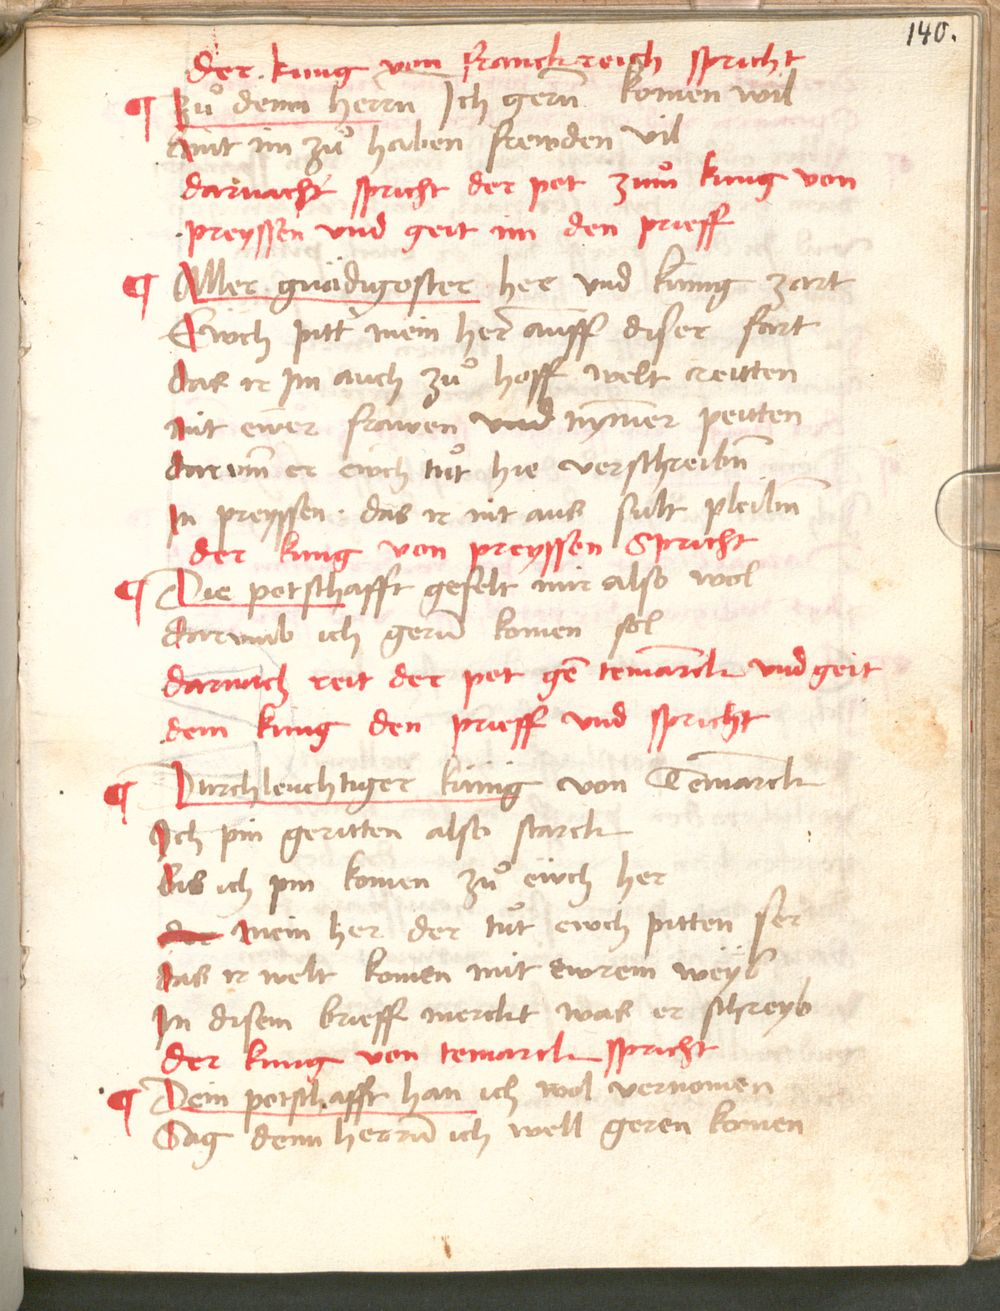 140.
der kung von franckreich spricht
¶ Zů deinn herrn Ich gern̄ komen wil
mit im zů haben frewden vil
darnach spricht der pot zum kung von
preyssen vnd geit im den prieff
¶ Aller gnädigoster her vnd künig zart
Ewch pitt mein her auff diser fart
das ir Im auch zů hoff welt reitten
mit ewer frawen vnd nym̄er peitten
darum̄ er ewch tůt hie verschreibn̄
In preyssen. das ir nit aus sült pleibn̄
der kung von preyssen Spricht
¶ Die potschafft gefelt mir also wol
darumb ich gern̄ komen sol
darnach reit der pot gē temarck vnd geit
dem kung den prieff vnd spricht
¶ Durchleuchtiger künig von Tēmarck
Ich pin geritten also starck
dis ich pin komen zů ewch her
der mein her der tůt ewch pitten ser
das ir welt komen mit ewrem weyb
In disem brieff merckt was er schreyb
der kung von temarck spricht
¶ Dein potschafft han ich wol vernomen
Sag deinn herrn̄ ich well geren komen